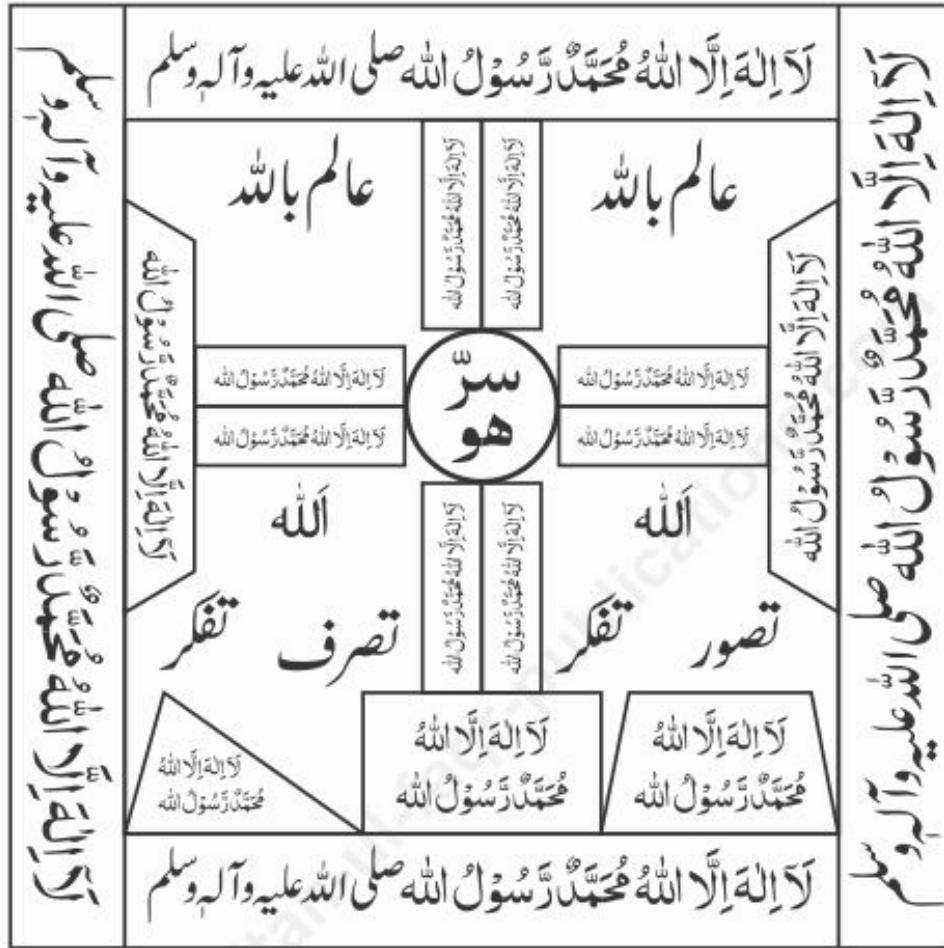 لَآ اِلٰهَ اِلَّا اللهُ مُحَمَّدٌ رَّسُوْلُ الله صلی اللہ علیہ وآلہٖ وسلم
لَآ اِلٰهَ اِلَّا اللهُ مُحَمَّدٌ رَّسُوْلُ الله صلی اللہ علیہ وآلہٖ وسلم
لَآ اِلٰهَ اِلَّا اللهُ مُحَمَّدٌ رَّسُوْلُ الله صلی اللہ علیہ وآلہٖ وسلم
عالم باللہ
لَآ اِلٰهَ اِلَّا اللهُ مُحَمَّدٌ رَّسُوْلُ الله
لَآ اِلٰهَ اِلَّا اللهُ مُحَمَّدٌ رَّسُوْلُ الله
عالم باللہ
لَآ اِلٰهَ اِلَّا اللهُ مُحَمَّدٌ رَّسُوْلُ الله
لَآ اِلٰهَ اِلَّا اللهُ مُحَمَّدٌ رَّسُوْلُ الله
لَآ اِلٰهَ اِلَّا اللهُ مُحَمَّدٌ رَّسُوْلُ الله
سرّ
ھو
لَآ اِلٰهَ اِلَّا اللهُ مُحَمَّدٌ رَّسُوْلُ الله
لَآ اِلٰهَ اِلَّا اللهُ مُحَمَّدٌ رَّسُوْلُ الله
لَآ اِلٰهَ اِلَّا اللهُ مُحَمَّدٌ رَّسُوْلُ الله
اَللہ
لَآ اِلٰهَ اِلَّا اللهُ مُحَمَّدٌ رَّسُوْلُ الله
لَآ اِلٰهَ اِلَّا اللهُ مُحَمَّدٌ رَّسُوْلُ الله
اَللہ
تصور
تفکر
تصرف
تفکر
لَآ اِلٰهَ اِلَّا اللهُ
مُحَمَّدٌ رَّسُوْلُ الله
لَآ اِلٰهَ اِلَّا اللهُ
مُحَمَّدٌ رَّسُوْلُ الله
لَآ اِلٰهَ اِلَّا اللهُ
مُحَمَّدٌ رَّسُوْلُ الله
لَآ اِلٰهَ اِلَّا اللهُ مُحَمَّدٌ رَّسُوْلُ الله صلی اللہ علیہ وآلہٖ وسلم